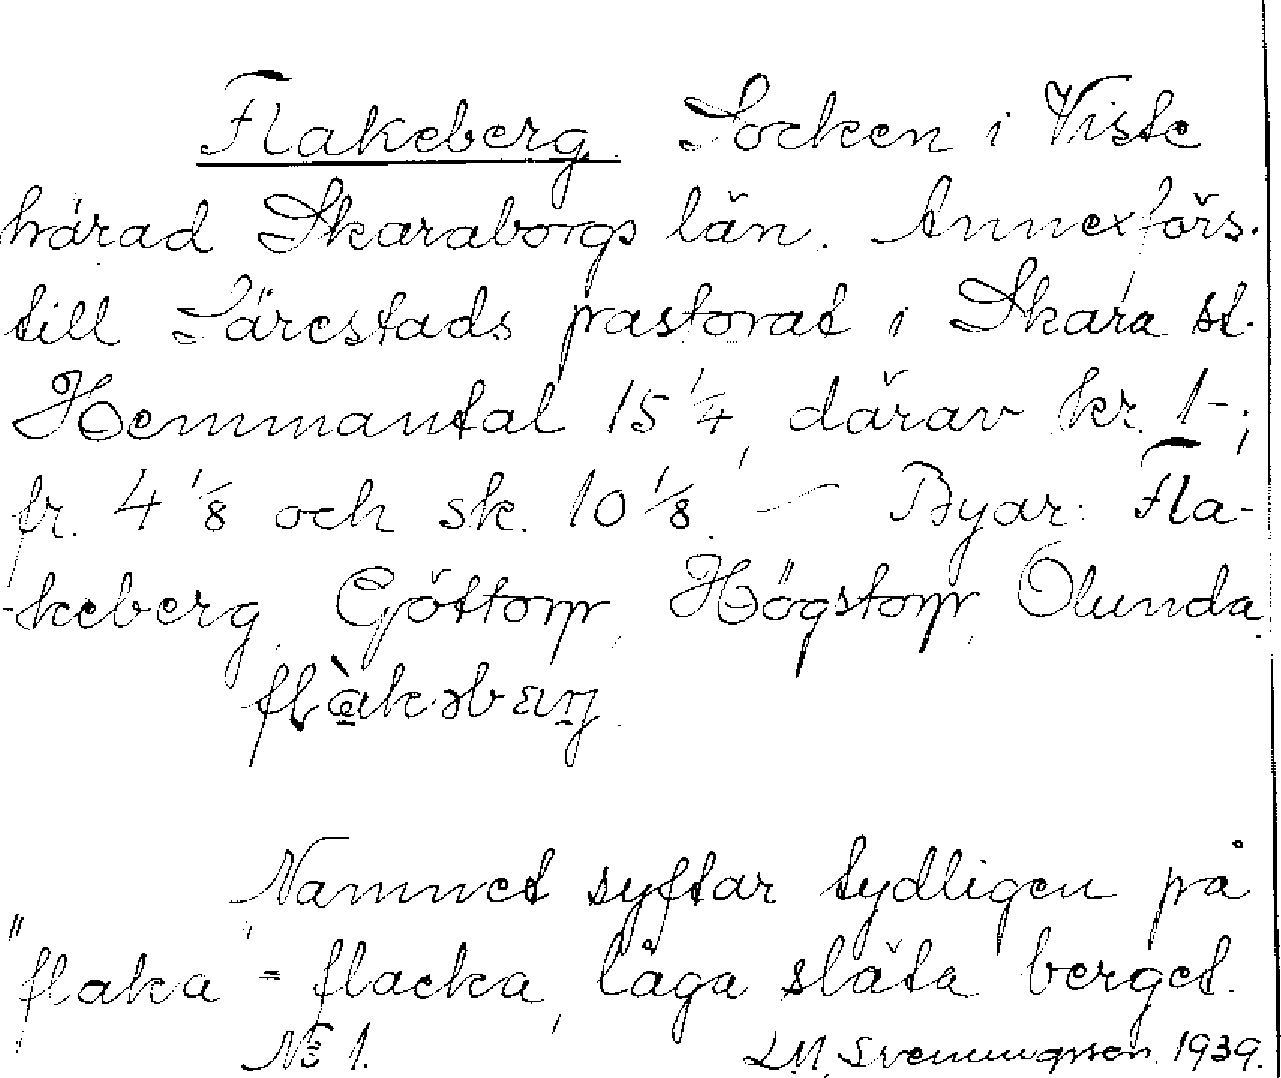 Flakeberg. Socken i Viste
härad Skaraborgs län. Annexförs.
till Särestads pastorat i Skara st.
Hemmantal 15 1/4, därav kr. 1-;
fr. 4 1/8 och sk. 10 1/8. — Byar: Fla-
-keberg, Göttorp, Högstorp, Olunda.
Namnet syftar tydligen på
"flaka" = flacka, låga släta berget.
No 1. L.M. Svenungsson 1939.